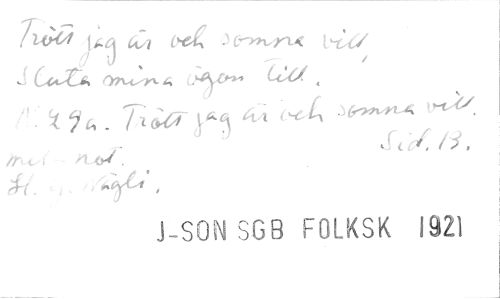 Trött jag är och somna vill,
Sluta mina ögon till.
N:29a. Trött jag är och somna vill.
Sid. 13.
med not.
H. G. Nägli.
J-SON SGB FOLKSK 1921